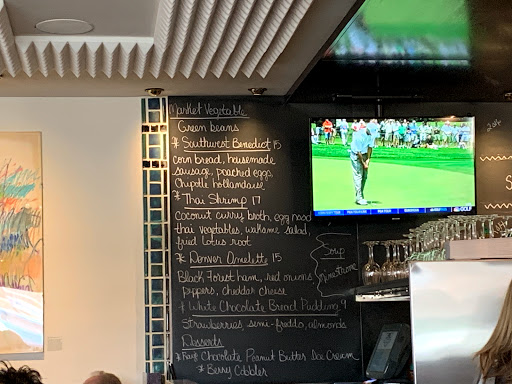 Market Vegetable
Green beans
* Southwest Benedict 15
corn bread, housemade
sausage, poached eggs,
Chipotle hollandaise
* Thai Shrimp 17
Coconut curry broth, egg noodl
thai vegetables, wakame salad,
fried lotus root
* Denver Omelette 15
Black forest ham, red onions
peppers, cheddar cheese
* White Chocolate Bread Pudding 9
Strawberries semi-freddo, almonds
Desserts
Chocolate Peanut Butter Ice Cream
* Berry Cobbler
Soup
minestrone
GOLF